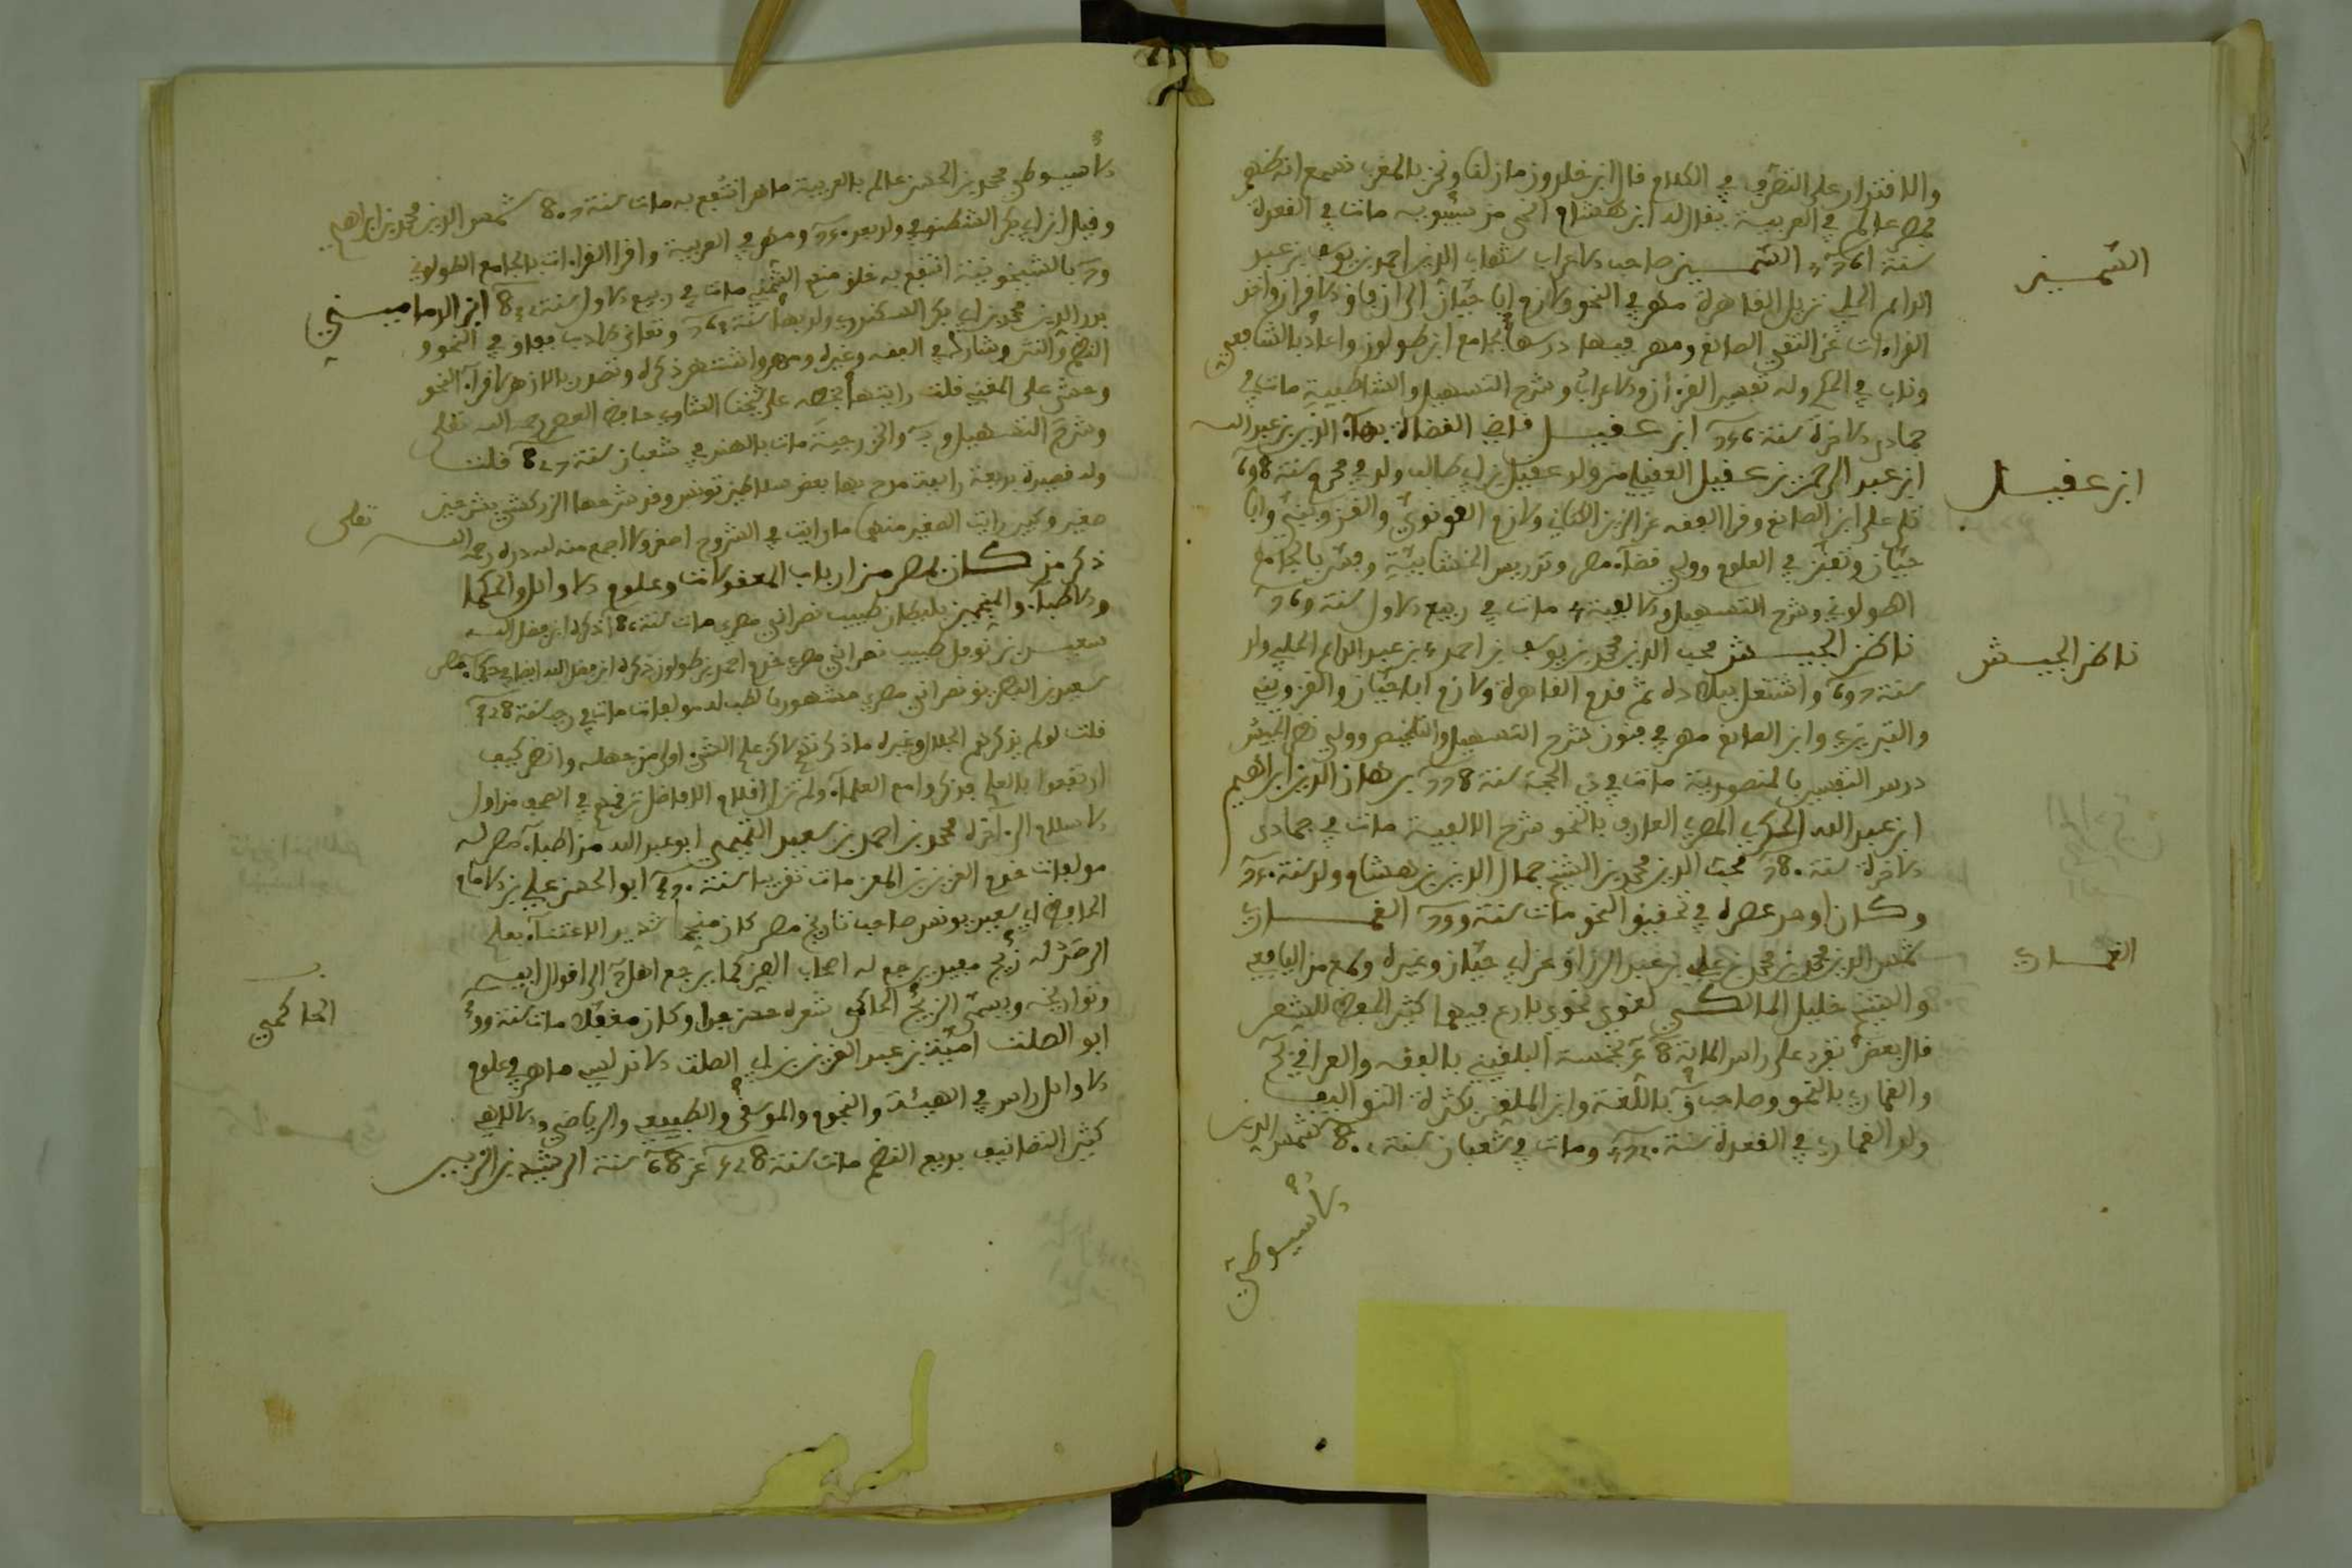 والاقتدار على التصرف في الكلام قال ابن خلدون مازلنا ونحن بالمغرب نسمع انه ظهر
بمصر عالم في العربية يقال له ابن هشام انحى من سيبويه مات في القعدة
السّمين
سنة 761 السّمين صاحب الاعراب شهاب الدين احمد بن يوسف بن عبد
الدايم الحلبي نزيل القاهرة مهر في النحو ولازم ابا حيّان الى ان فاق الاقران واخذ
القراءات عن التقي الصايغ ومهر فيها درسها بجامع ابن طولون واعاد بالشافعي
وناب في الحكم وله تفسير القرءان والاعراب وشرح التسهيل والشاطبية مات في
جمادى الاخرة سنة 756 ابن عقيل قاضي القضاة بهاء الدين بن عبد الله
ابن عقيل
ابن عبد الرحمن بن عقيل العقيلي من ولد عقيل بن ابي طالب ولد في محرم سنة 698
تلى على ابن الصايغ وقرا الفقه عن الزين الكتاني ولازم القونويّ والقزوينيّ وابا
حيّان وتفنّن في العلوم وولي قضاء مصر وتدريس الخشابيّة وفسّر بالجامع
الطولوني وشرح التسهيل والالفية مات في ربيع الاول سنة 769
ناظر الجيش
ناظر الجيش محب الدين محمد بن يوسف بن احمد بن عبد الدايم الحلبي ولد
سنة 697 واشتغل ببلاده ثم قدم القاهرة ولازم ابا حيّان والقزويني
والتبريزي وابن الصايغ مهر في فنون شرح التسهيل والتلخيص وولي نظر الجيش
درس التفسير بالمنصورية مات في ذي الحجة سنة 778 برهان الدين ابراهيم
ابن عبد الله الحكري المصري العارف بالنحو شرح الالفية مات في جمادى
الاخرة سنة 780 محب الدين محمد بن الشيخ جمال الدين بن هشام ولد سنة 750
وكان اوحد عصره في تحقيق النحو مات سنة 799 الغماري
الغماري
شمس الدين محمد بن محمد بن علي بن عبد الرزاق عن ابي حيّان وغيره وسمع من اليافعي
والشيخ خليل المالكي لغوي نحوي بارع فيهما كثير الحفظ للشعر
قال بعضٌ تفرد على راس الماية 8 خمسة البلقيني بالفقه والعراقي
والغماري بالنحو وصاحب ق باللّغة وابن الملقن بكثرة التواليف
ولد الغماري في القعدة سنة 720 ومات في شعبان سنة 802 شمس الدين
الاسيوطي
الاسيوطي محمد بن الحسن عالم بالعربية ماهر انتفع به مات سنة 807 شمس الدين محمد بن ابراهيم
وقيل ابن ابي بكر الشطنوفي ولد بعد 750 ومهر في العربية واقرا القراءات بالجامع الطولوني
بالشيخونية انتفع به خلق منهم الشّمُني مات في ربيع الاول سنة 832 ابن الدماميني
بدر الدين محمد بن ابي بكر السكندري ولد بها سنة 763 وتعانى الاداب ففاق في النحو و
النظم والنثر وشارك في الفقه وغيره ومهر واشتهر ذكره وتصدر بالازهر لاقراء النحو
وحشى على المغني قلت رايتها بخطه على شيخنا حافظ العصر رحمه الله تعلى
وشرح التسهيل و والخزرجية مات بالهند في شعبان سنة 827 قلت
وله قصيدة بديعة رايقة مدح بها بعض سلاطين تونس وقد شرحها الزركشي بشرحين
صغير وكبير رايت الصغير منهما ما رايت في الشروح اصغر ولا اجمع منه لله دره رحمه الله تعلى
ذكر من كان بمصر من ارباب المعقولات وعلوم الاوائل والحكما
والاطباء والمنجمين بليطان طبيب نصراني مصري مات سنة 186 ذكره ابن فضل الله
سعيد بن نوفل طبيب نصراني مصري خدم احمد بن طولون ذكره ابن فضل الله ايضا في حكماء مصر
سعيد بن البطريق نصراني مصري مشهور بالطب له مولفات مات في رجب سنة 328
قلت لو لم يذكرهم الجلال وغيره ما ذكرتهم على الشيء اولى من جهله وانظر كيف
ارتفعوا بالعلم فذكروا مع العلماء ولم تزل اقلام الافاضل ترقمهم في الصحف من اول
الاسلام الى اخره محمد بن احمد بن سعيد التميمي ابو عبد الله من اطباء مصر له
مولفات خدم العزيز بن المعز مات تقريبا سنة 370 ابو الحسن علي بن الامام
الحافظ ابي سعيد بن يونس صاحب تاريخ مصر كان منجما شديد الاعتناء بعلم
الرصد له زيج مفيد يرجع له اصحاب الفن كما يرجع اهل الى اقوال ابيه
الحاكمي
وتواريخه ويسمّى الزيج الحاكمي شعره حسن جدا وكان مغفلا مات سنة 399
ابو الصلت اميّة بن عبد العزيز بن ابي الصلت الاندلسي ماهر في علوم
الاوائل راس في الهيئة والنجوم والموسقى والطبيعي والرياضي والالاهي
كثير التصانيف بديع النظم مات سنة 528 عن 68 سنة الرشيد بن الزبير